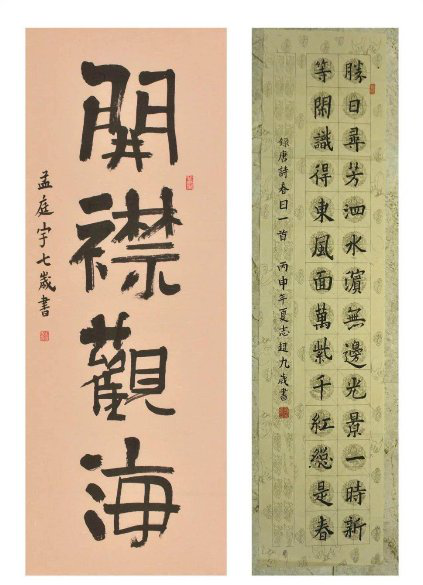 開襟觀海
孟庭宇七歲書
勝日尋芳泗水濱無邊光景一時新
等閑識得東風面萬紫千紅總是春
録唐詩春日一首 丙申年夏志超九歲書